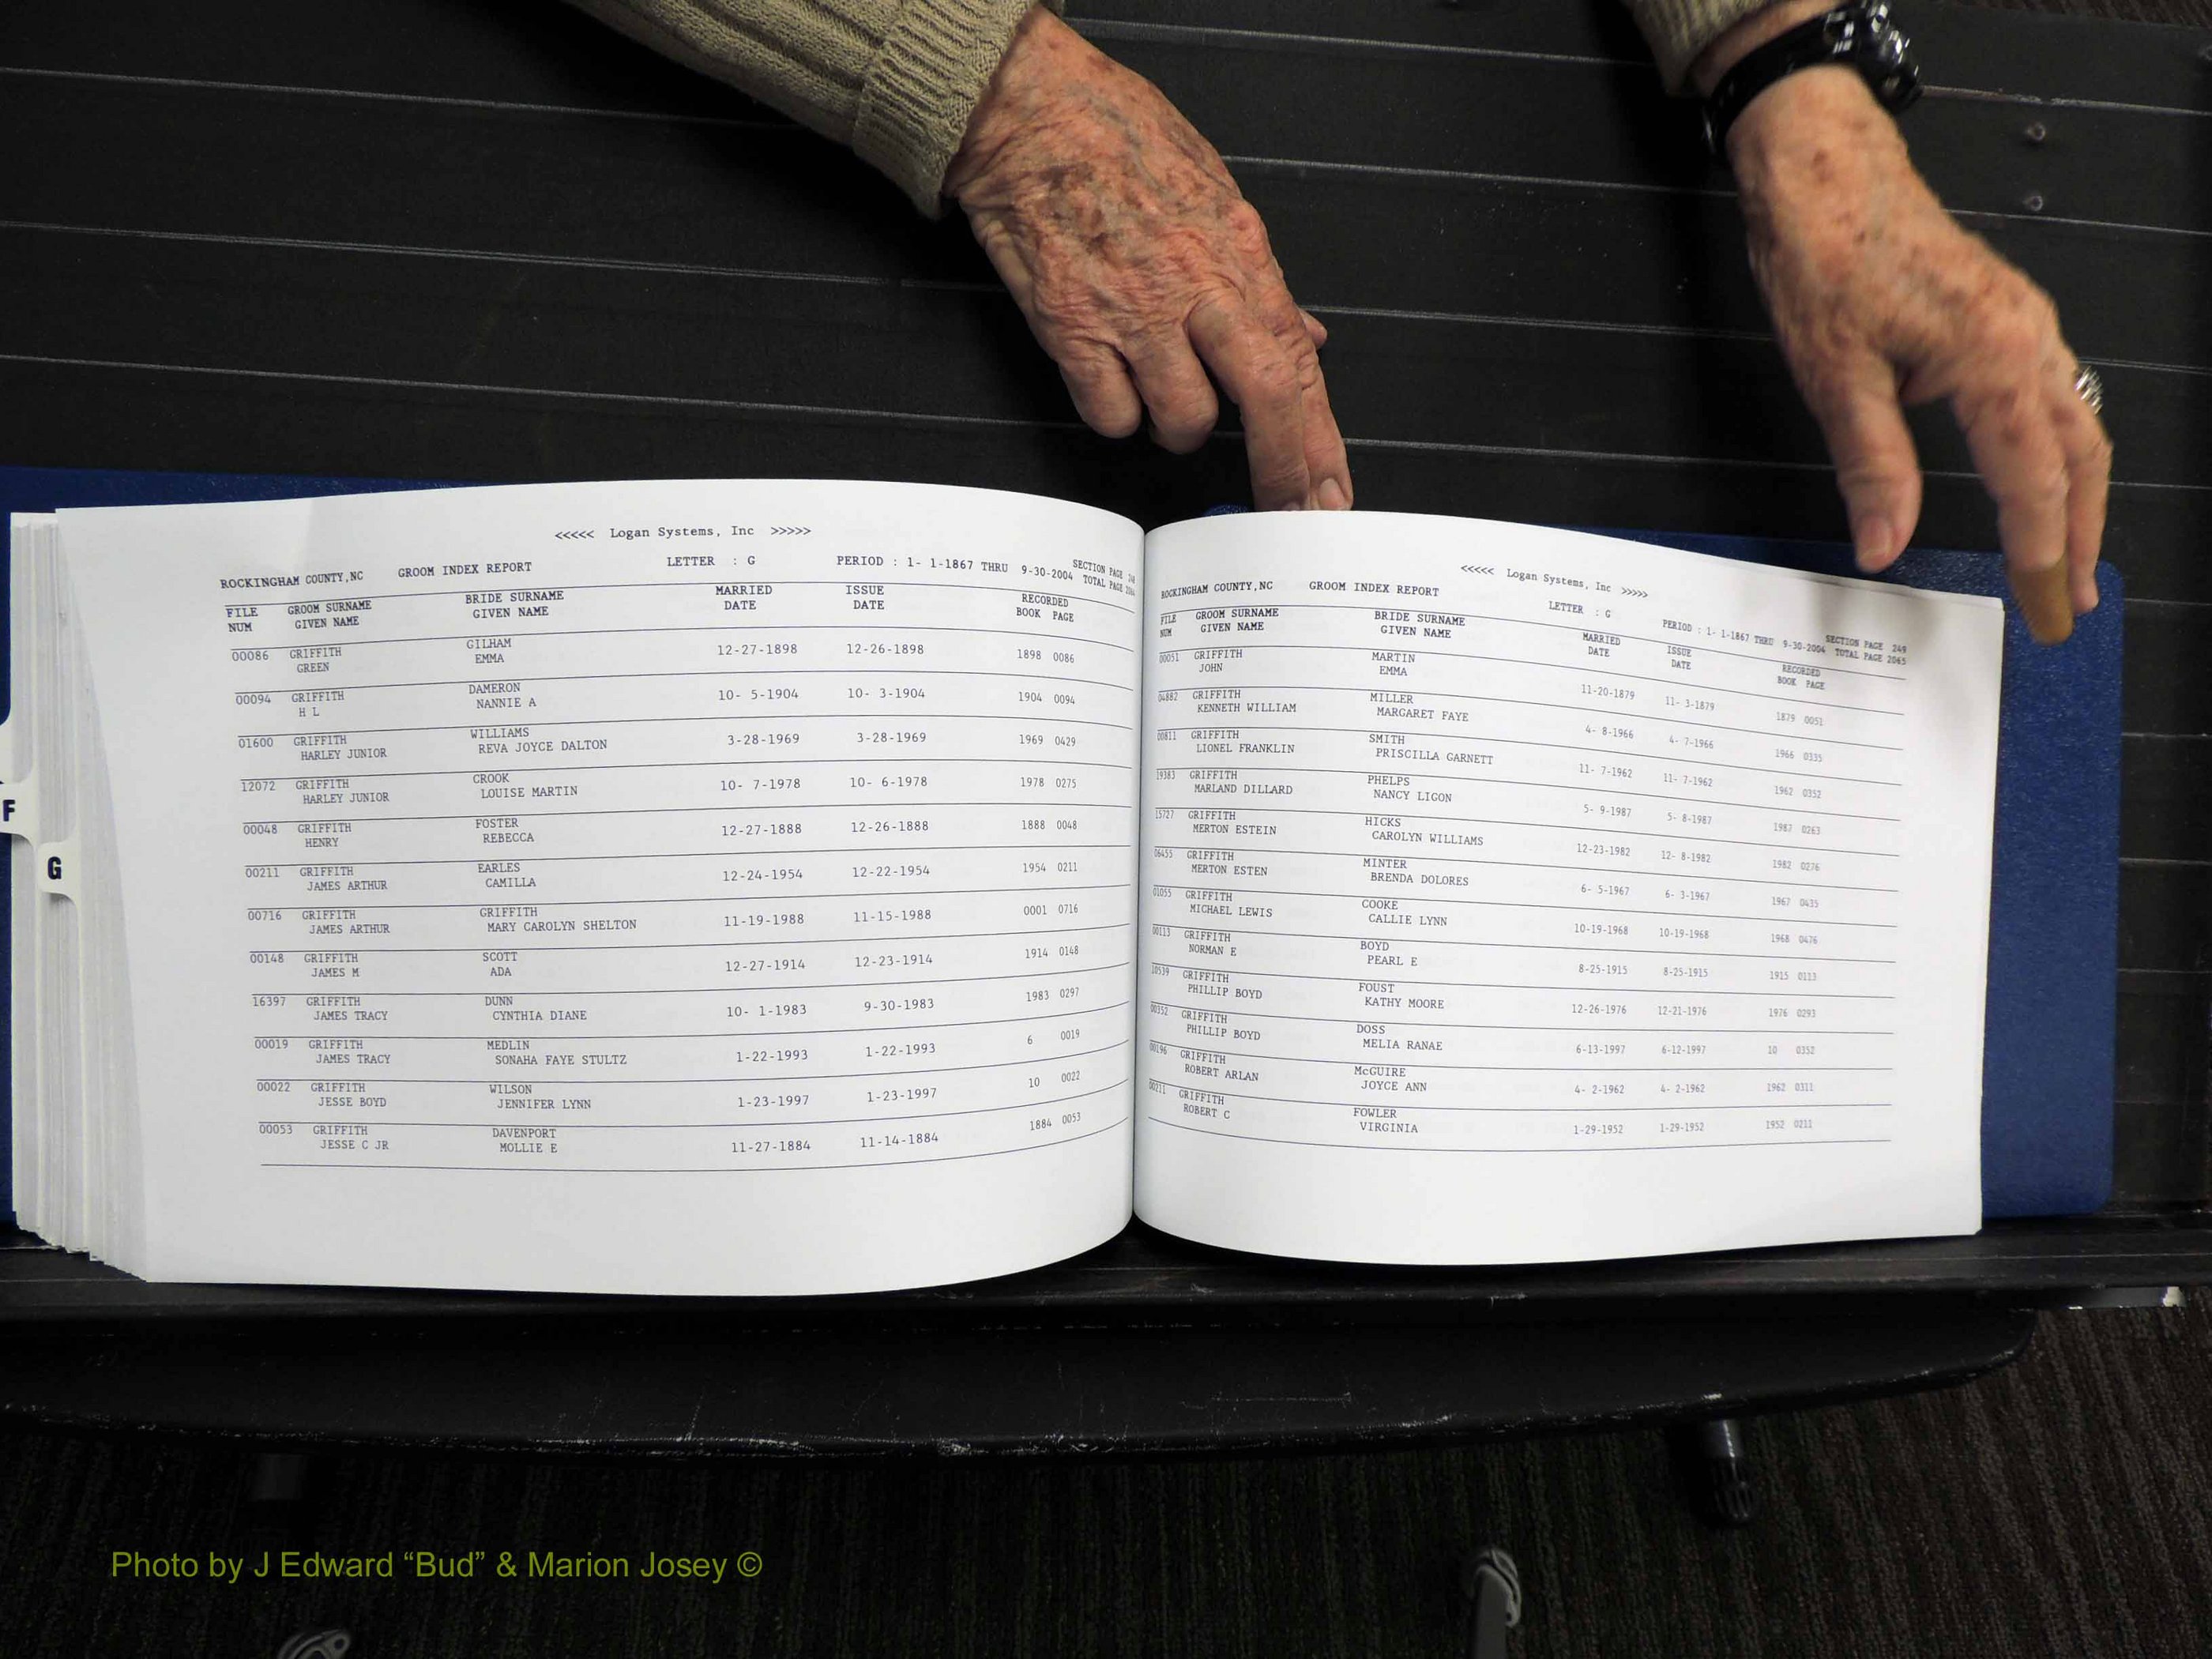 <<<<< Logan Systems, Inc >>>>>
ROCKINGHAM COUNTY,NC GROOM INDEX REPORT LETTER : G PERIOD : 1- 1-1867 THRU 9-30-2004 SECTION PAGE
TOTAL PAGE
FILE GROOM SURNAME BRIDE SURNAME MARRIED ISSUE RECORDED
NUM GIVEN NAME GIVEN NAME DATE DATE BOOK PAGE
00086 GRIFFITH GILHAM 12-27-1898 12-26-1898 1898 0086
GREEN EMMA
00094 GRIFFITH DAMERON 10- 5-1904 10- 3-1904 1904 0094
H L NANNIE A
01600 GRIFFITH WILLIAMS 3-28-1969 3-28-1969 1969 0429
HARLEY JUNIOR REVA JOYCE DALTON
12072 GRIFFITH CROOK 10- 7-1978 10- 6-1978 1978 0275
HARLEY JUNIOR LOUISE MARTIN
00048 GRIFFITH FOSTER 12-27-1888 12-26-1888 1888 0048
HENRY REBECCA
00211 GRIFFITH EARLES 12-24-1954 12-22-1954 1954 0211
JAMES ARTHUR CAMILLA
00716 GRIFFITH GRIFFITH 11-19-1988 11-15-1988 0001 0716
JAMES ARTHUR MARY CAROLYN SHELTON
00148 GRIFFITH SCOTT 12-27-1914 12-23-1914 1914 0148
JAMES M ADA
16397 GRIFFITH DUNN 10- 1-1983 9-30-1983 1983 0297
JAMES TRACY CYNTHIA DIANE
00019 GRIFFITH MEDLIN 1-22-1993 1-22-1993 6 0019
JAMES TRACY SONAHA FAYE STULTZ
00022 GRIFFITH WILSON 1-23-1997 1-23-1997 10 0022
JESSE BOYD JENNIFER LYNN
00053 GRIFFITH DAVENPORT 11-27-1884 11-14-1884 1884 0053
JESSE C JR MOLLIE E
F
G
<<<<< Logan Systems, Inc >>>>>
ROCKINGHAM COUNTY,NC GROOM INDEX REPORT LETTER : G PERIOD : 1- 1-1867 THRU 9-30-2004 SECTION PAGE 249
TOTAL PAGE 2065
FILE GROOM SURNAME BRIDE SURNAME MARRIED ISSUE RECORDED
NUM GIVEN NAME GIVEN NAME DATE DATE BOOK PAGE
00051 GRIFFITH MARTIN 11-20-1879 11- 3-1879 1879 0051
JOHN EMMA
04882 GRIFFITH MILLER 4- 8-1966 4- 7-1966 1966 0335
KENNETH WILLIAM MARGARET FAYE
00811 GRIFFITH SMITH 11- 7-1962 11- 7-1962 1962 0352
LIONEL FRANKLIN PRISCILLA GARNETT
19383 GRIFFITH PHELPS 5- 9-1987 5- 8-1987 1987 0263
MARLAND DILLARD NANCY LIGON
15727 GRIFFITH HICKS 12-23-1982 12- 8-1982 1982 0276
MERTON ESTEIN CAROLYN WILLIAMS
06455 GRIFFITH MINTER 6- 5-1967 6- 3-1967 1967 0435
MERTON ESTEN BRENDA DOLORES
01055 GRIFFITH COOKE 10-19-1968 10-19-1968 1968 0476
MICHAEL LEWIS CALLIE LYNN
00113 GRIFFITH BOYD 8-25-1915 8-25-1915 1915 0113
NORMAN E PEARL E
10539 GRIFFITH FOUST 12-26-1976 12-21-1976 1976 0293
PHILLIP BOYD KATHY MOORE
00352 GRIFFITH DOSS 6-13-1997 6-12-1997 10 0352
PHILLIP BOYD MELIA RANAE
00196 GRIFFITH McGUIRE 4- 2-1962 4- 2-1962 1962 0311
ROBERT ARLAN JOYCE ANN
00211 GRIFFITH FOWLER 1-29-1952 1-29-1952 1952 0211
ROBERT C VIRGINIA
Photo by J Edward “Bud” & Marion Josey ©